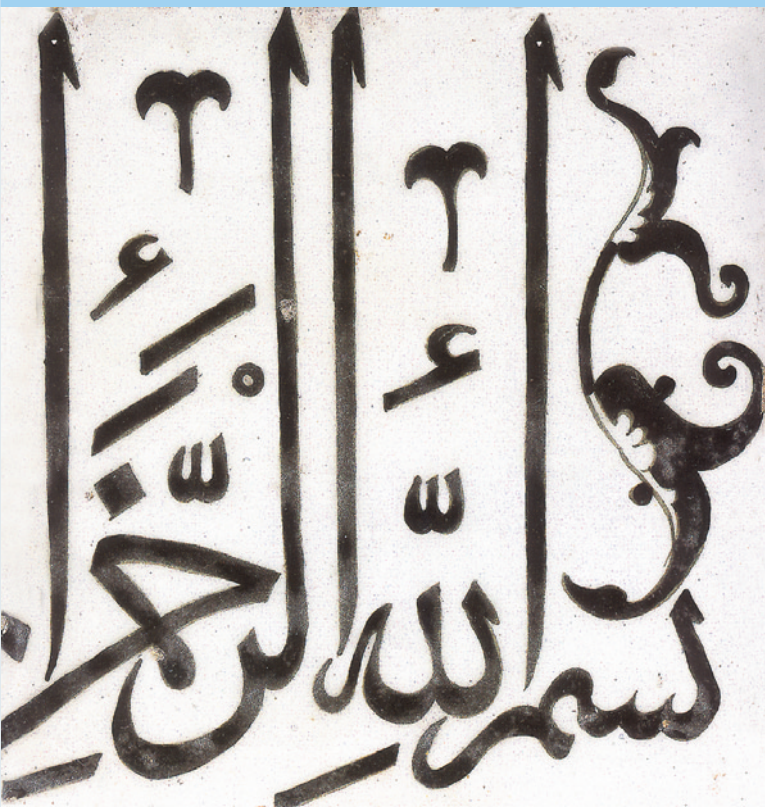 بسم الله الرحمن